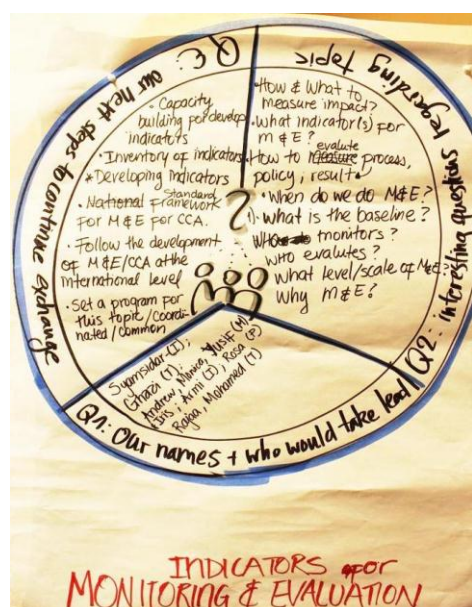 Q3: our next steps to continue exchange
• Capacity
building for develop
indicators
• Inventory of indicators
* Developing indicators
• National Standard framework
FOR M & E FOR CCA.
• Follow the development
of M & E/CCA at the
international level
• Set a program for
this topic/coordi-
nated/common
Q2: interesting questions regarding topic
• How & What to
measure impact?
• What indicator(s) for
M & E?
• How to evaluate process,
policy, result
• When do we do M&E?
• What is the baseline?
WHO monitors?
WHO evalutes?
What level/scale of M&E?
Why M & E?
?
Q1: Our names + who would take lead
Syamsidar (I);
Ghazi (T);
Andrew, Monica, Yusif (M)
Iris; Armi (I), Rosa (P)
Rajaa, Mohamed (T)
INDICATORS for
MONITORING & EVALUATION